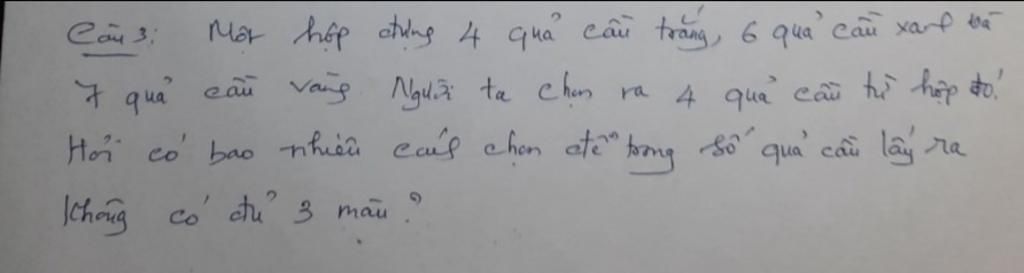 Câu 3: Một hộp đựng 4 quả cầu trắng, 6 quả cầu xanh và
7 quả cầu vàng. Người ta chọn ra 4 quả cầu từ hộp đó.
Hỏi có bao nhiêu cách chọn để trong số quả cầu lấy ra
không có đủ 3 màu?